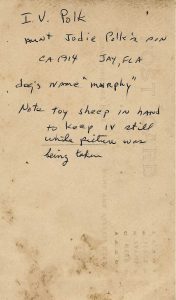 I. V. Polk
aunt Jodie Polk's son
CA 1914 JAY, FLA
dog's name "murphy"
Note toy sheep in hand
to keep IV still
while picture was
being taken